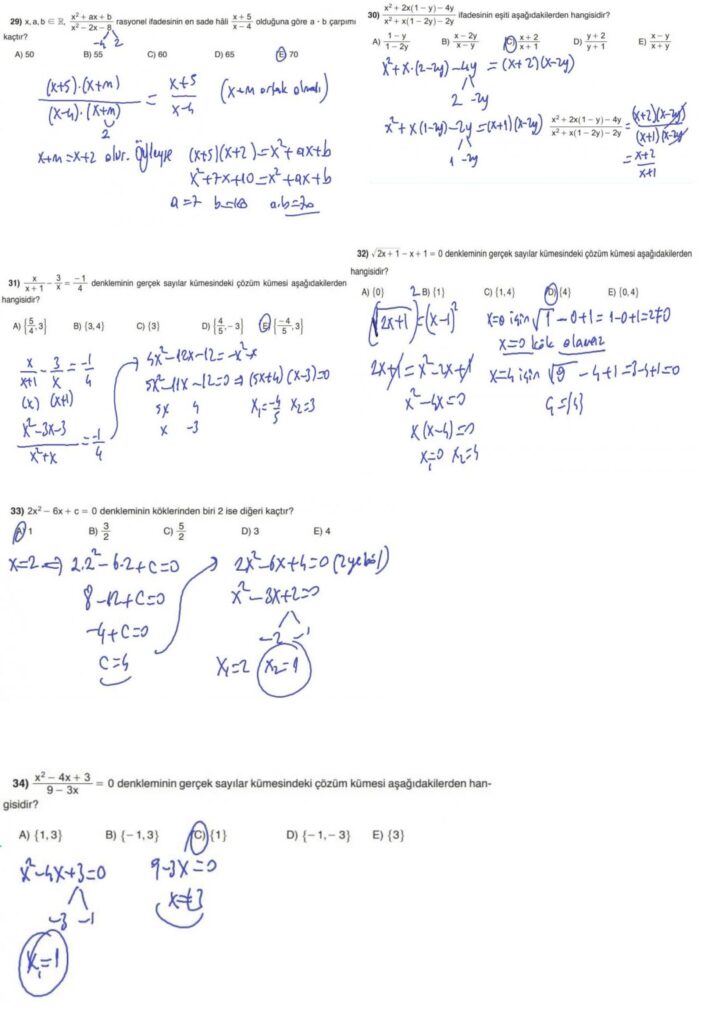 29) x, a, b ∈ ℝ, (x² + ax + b)/(x² − 2x − 8) rasyonel ifadesinin en sade hâli (x + 5)/(x − 4) olduğuna göre a · b çarpımı
kaçtır?
-4 2
A) 50 B) 55 C) 60 D) 65 E) 70
(x+5).(x+m)/(x-4).(x+m) = x+5/x-4 (x+m ortak olmalı)
2
x+m=x+2 olur. Öyleyse (x+5)(x+2)=x²+ax+b
x²+7x+10=x²+ax+b
a=7 b=10 a.b=70
30) (x² + 2x(1 − y) − 4y)/(x² + x(1 − 2y) − 2y) ifadesinin eşiti aşağıdakilerden hangisidir?
A) (1 − y)/(1 − 2y) B) (x − 2y)/(x − y) C) (x + 2)/(x + 1) D) (y + 2)/(y + 1) E) (x − y)/(x + y)
x²+x.(2-2y)-4y = (x+2)(x-2y)
2 -2y
x²+x(1-2y)-2y=(x+1)(x-2y) (x² + 2x(1 − y) − 4y)/(x² + x(1 − 2y) − 2y) = (x+2)(x-2y)/(x+1)(x-2y)
1 -2y
= x+2/x+1
31) x/(x + 1) − 3/x = −1/4 denkleminin gerçek sayılar kümesindeki çözüm kümesi aşağıdakilerden
hangisidir?
A) {5/4, 3} B) {3, 4} C) {3} D) {4/5, − 3} E) {−4/5, 3}
x/x+1 - 3/x = -1/4
(x) (x+1)
x²-3x-3/x²+x = -1/4
4x²-12x-12=-x²-x
5x²-11x-12=0 ⇒ (5x+4)(x-3)=0
5x 4 x₁=-4/5 x₂=3
x -3
32) √(2x + 1) − x + 1 = 0 denkleminin gerçek sayılar kümesindeki çözüm kümesi aşağıdakilerden
hangisidir?
A) {0} B) {1} C) {1, 4} D) {4} E) {0, 4}
(√2x+1)²=(x-1)²
2x+1=x²-2x+1
x²-4x=0
x(x-4)=0
x₁=0 x₂=4
x=0 için √1 -0+1=1-0+1=2≠0
x=0 kök olamaz
x=4 için √9 -4+1=3-4+1=0
Ç={4}
33) 2x² − 6x + c = 0 denkleminin köklerinden biri 2 ise diğeri kaçtır?
A) 1 B) 3/2 C) 5/2 D) 3 E) 4
x=2 ⇒ 2.2²-6.2+c=0
8-12+c=0
-4+c=0
c=4
2x²-6x+4=0 (2 ye böl)
x²-3x+2=0
-2 -1
x₁=2 x₂=1
34) (x² − 4x + 3)/(9 − 3x) = 0 denkleminin gerçek sayılar kümesindeki çözüm kümesi aşağıdakilerden han-
gisidir?
A) {1, 3} B) {−1, 3} C) {1} D) {−1, − 3} E) {3}
x²-4x+3=0
-3 -1
x₁=1
9-3x=0
x≠3